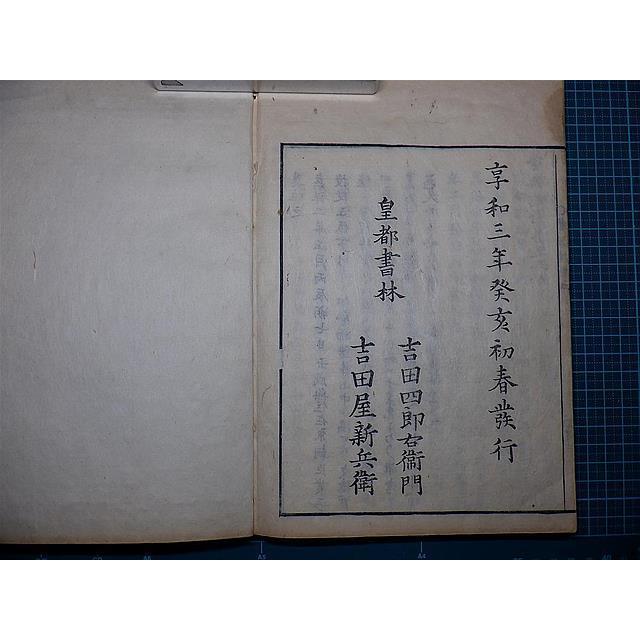 享和三年癸亥初春發行
皇都書林
吉田四郎右衞門
吉田屋新兵衛
A5
A4